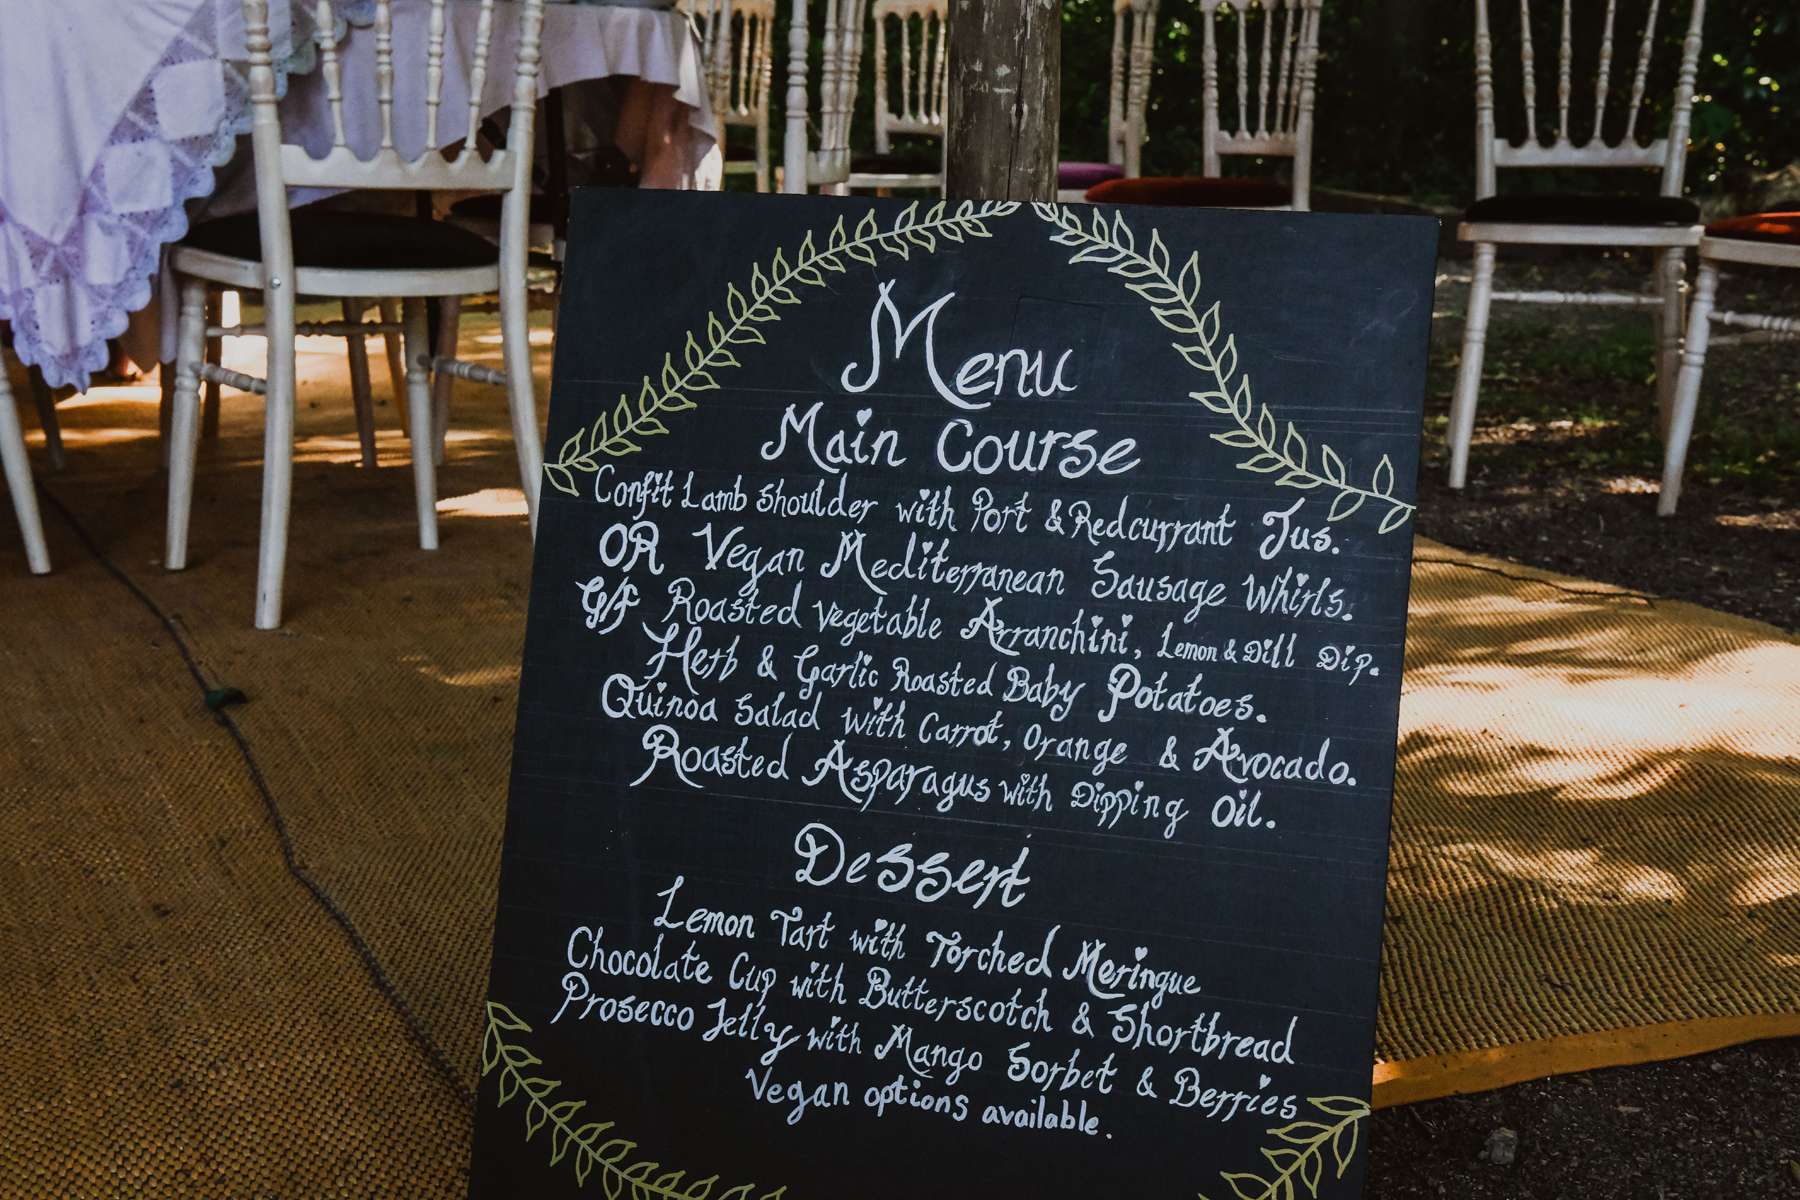 Menu
Main Course
Confit Lamb Shoulder with Port & Redcurrant Jus.
OR Vegan Mediterranean Sausage Whirls.
G/F Roasted Vegetable Arranchini, Lemon & Dill Dip.
Herb & Garlic Roasted Baby Potatoes.
Quinoa Salad with Carrot, Orange & Avocado.
Roasted Asparagus with Dipping Oil.
Dessert
Lemon Tart with Torched Meringue
Chocolate Cup with Butterscotch & Shortbread
Prosecco Jelly with Mango Sorbet & Berries
Vegan options available.